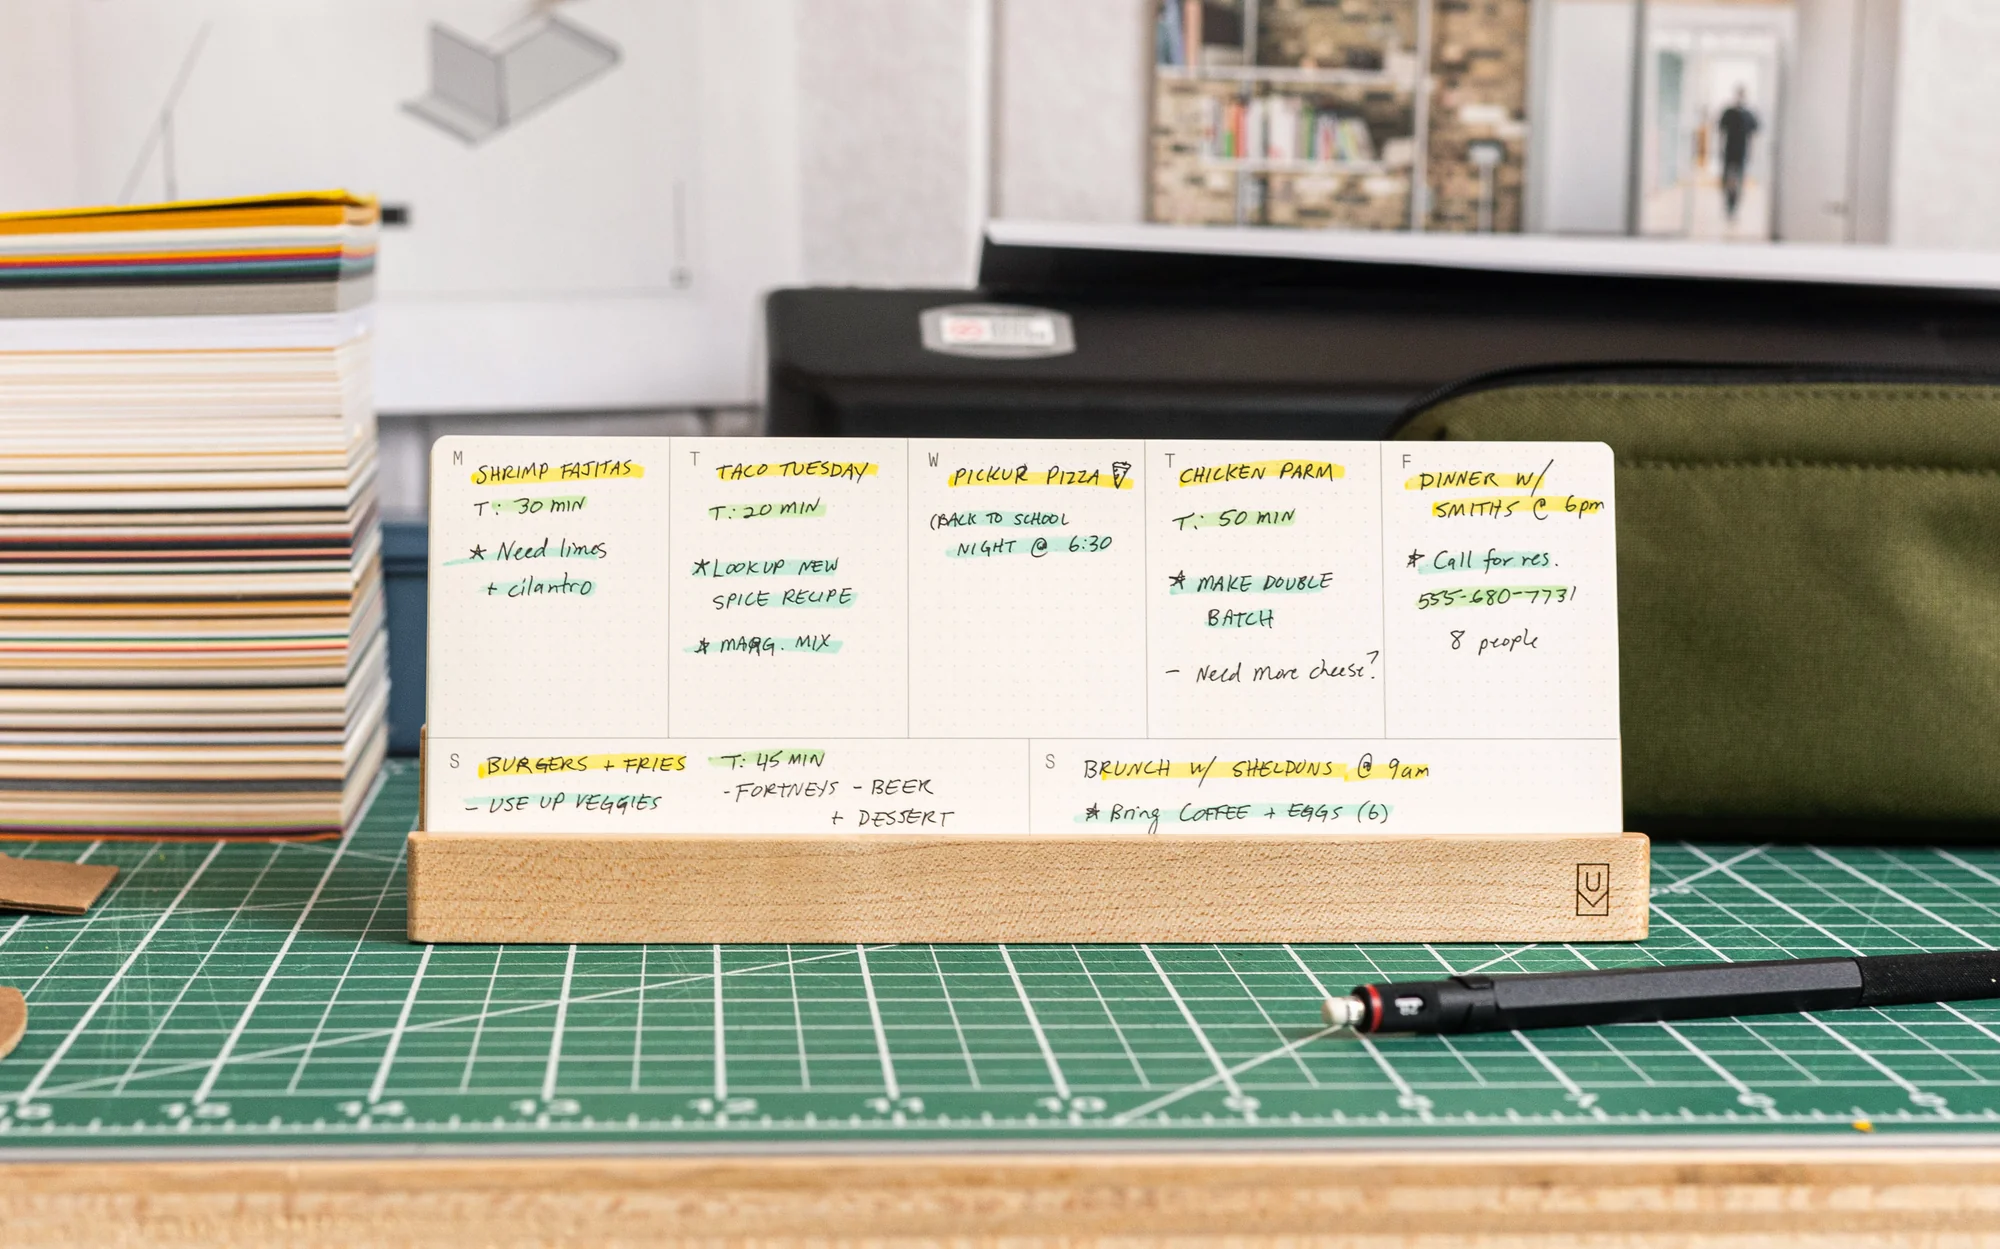 M
SHRIMP FAJITAS
T: 30 MIN
* Need limes
+ cilantro
T
TACO TUESDAY
T: 20 MIN
* LOOKUP NEW
SPICE RECIPE
* MARG. MIX
W
PICKUP PIZZA
(BACK TO SCHOOL
NIGHT @ 6:30
T
CHICKEN PARM
T: 50 MIN
* MAKE DOUBLE
BATCH
- Need more cheese?
F
DINNER W/
SMITHS @ 6pm
* Call for res.
555-680-7731
8 people
S
BURGERS + FRIES T: 45 MIN
- USE UP VEGGIES
- FORTNEYS - BEER
+ DESSERT
S
BRUNCH W/ SHELDONS @ 9am
* Bring COFFEE + EGGS (6)
U
16 15 14 13 12 11 10 9 8 7 6 5